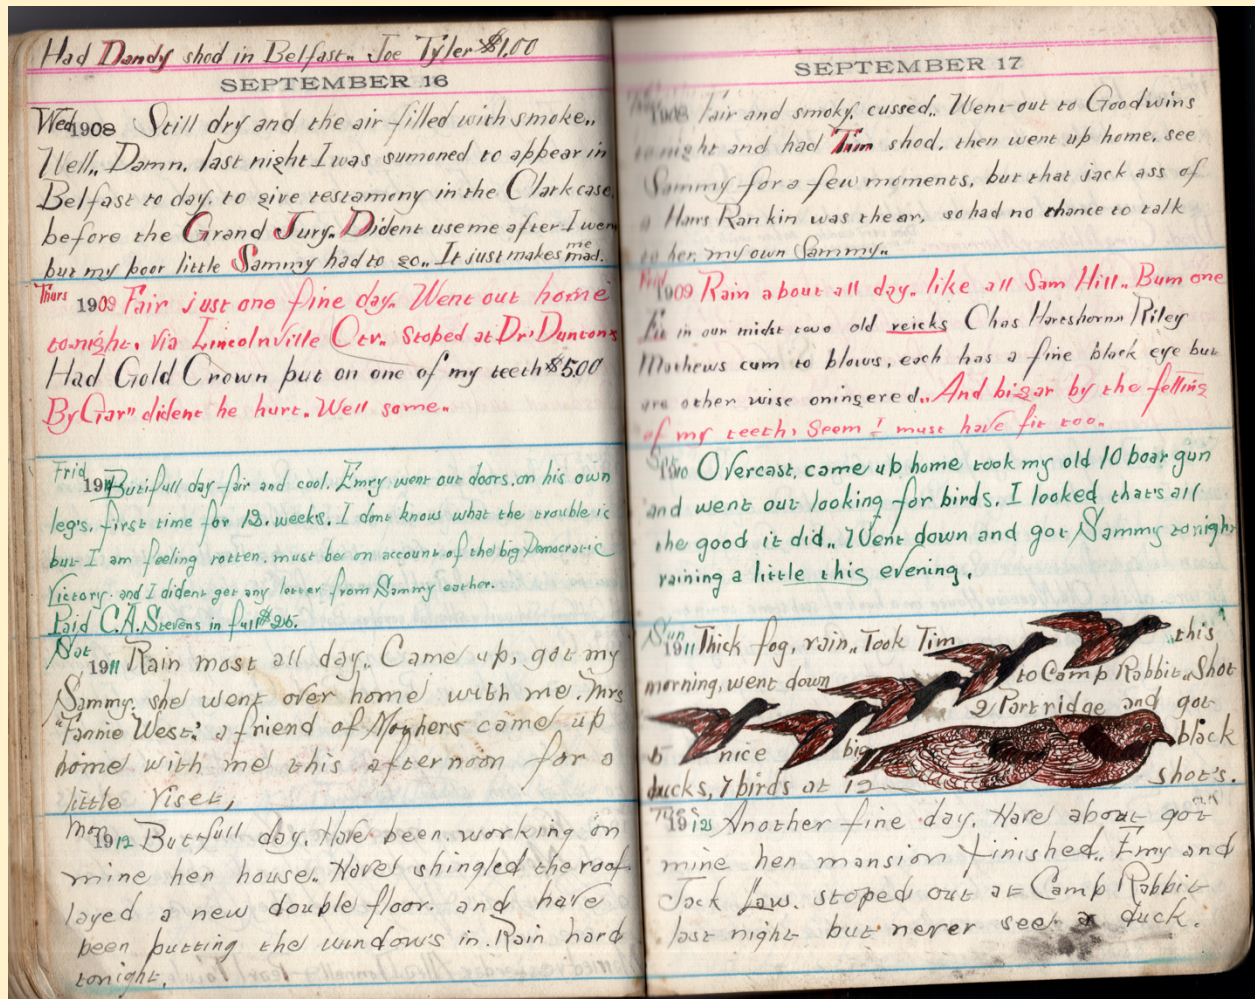 Had Dandy shod in Belfast,, Joe Tyler $1.00
SEPTEMBER 16
Wed 1908 Still dry and the air filled with smoke,,
Well,, Damn, last night I was sumoned to appear in
Belfast to day, to give testamony in the Clark case,
before the Grand Jury. Dident use me after I went
but my poor little Sammy had to go,, It just makes me mad.
Thurs 1909 Fair just one fine day. Went out home
tonight, via Lincolnville Ctr,, Stoped at Dr. Duntons
Had Gold Crown put on one of my teeth $5.00
By Gar" dident he hurt. Well some,,
Frid 1910 Butifull day fair and cool. Emry went out doors, on his own
leg's, first time for 12, weeks, I dont know what the trouble is
but I am feeling rotten, must be on account of the big Democratic
Victory. and I dident get any letter from Sammy eather.
Paid C.A. Stevens in full $25.
Sat 1911 Rain most all day,, Came up, got my
Sammy. she went over home with me. Mrs
"Fannie West." a friend of Mothers came up
home with me this afternoon for a
little viset,
Mon 1912 Butifull day. Have been working on
mine hen house. Have shingled the roof
layed a new double floor. and have
been putting the window's in. Rain hard
tonight.
SEPTEMBER 17
1908 Fair and smoky, cussed,, Went out to Goodwins
tonight and had Tim shod, then went up home, see
Sammy for a few moments, but that jack ass of
a Hans Rankin was thear, so had no chance to talk
to her, my own Sammy,,
Frid 1909 Rain about all day,, like all Sam Hill,, Bum one
Fit in our midst two old reicks Chas Hartshornn Riley
Mathews cum to blows, each has a fine black eye but
are other wise oningered,, And bigar by the felling
of my teeth, Seem I must have fit too,,
Sat Overcast, came up home took my old 10 boar gun
and went out looking for birds, I looked, that's all
the good it did,, Went down and got Sammy tonight
raining a little this evening.
Sun 1911 Thick fog, rain,, Took Tim this
morning, went down to Camp Rabbit,, Shot
2 Partridge and got
5 nice big black
ducks, 7 birds at 12 shot's.
Tues 1912 Another fine day. Have about got
mine hen mansion finished,, Emy and
Jack Law. stoped out at Camp Rabbit
last night but never see a duck.